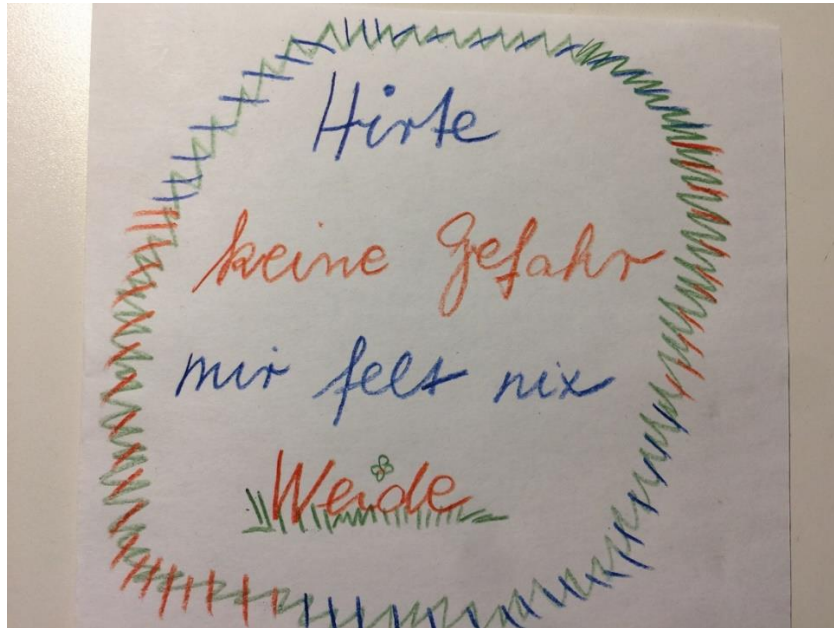 Hirte
keine Gefahr
mir felt nix
Weide